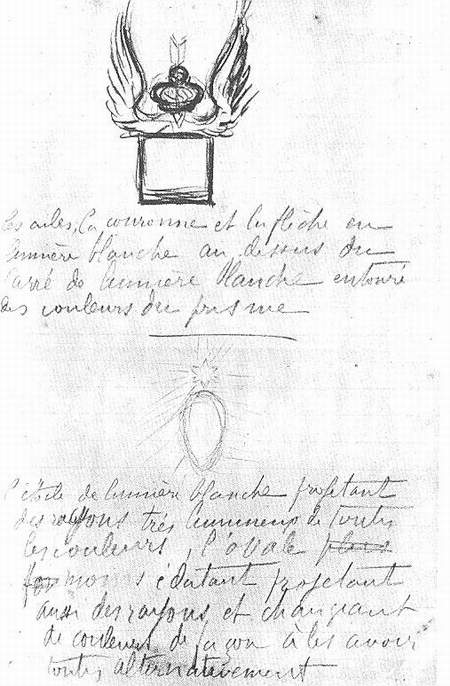 les ailes, la couronne et la flèche en
lumière blanche au dessus du
carré de lumière blanche entouré
des couleurs du prisme
l'étoile de lumière blanche projetant
des rayons très lumineux de toutes
les couleurs, l'ovale plus
moins éclatant projetant
aussi des rayons et changeant
de couleurs de façon à les avoir
toutes alternativement